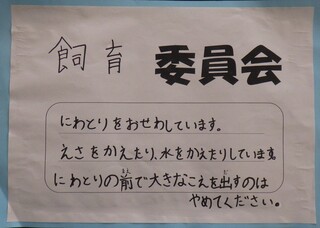 飼育 委員会
にわとりをおせわしています。
えさをかえたり、水をかえたりしています。
にわとりの前で大きなこえを出すのは
やめてください。